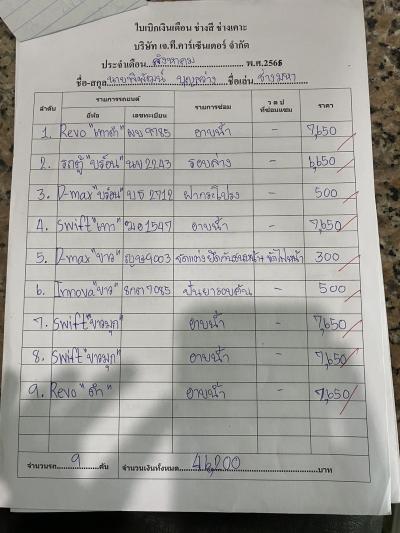 ใบเบิกเงินเดือน ช่างสี ช่างเคาะ
บริษัท เจ.ที.คาร์เซ็นเตอร์ จำกัด
ประจำเดือน สิงหาคม พ.ศ.2565
ชื่อ-สกุล นายพิพัฒน์ บุญสว่าง ชื่อเล่น ช่างมหา
ลำดับ รายการรถยนต์ รายการซ่อม ว ด ป ที่ซ่อมแซม ราคา
ยี่ห้อ เลขทะเบียน
1. Revo "เทาดำ" 9785 อาบน้ำ - 7,650
2. รถตู้ "บร์อน" 2243 รอบล่าง - 6,650
3. D-max "บร์อน" 2712 ฝากระโปรง - 500
4. Swift "เทา" 1547 อาบน้ำ - 7,650
5. D-max "ขาว" 9003 - 300
6. Innova "ขาว" 7085 ปั่นยารอบคัน - 500
7. Swift "ขาวมุก" อาบน้ำ - 7,650
8. Swift "ขาวมุก" อาบน้ำ - 7,650
9. Revo "ดำ" อาบน้ำ - 7,650
จำนวนรถ 9 คัน จำนวนเงินทั้งหมด 46,200 บาท